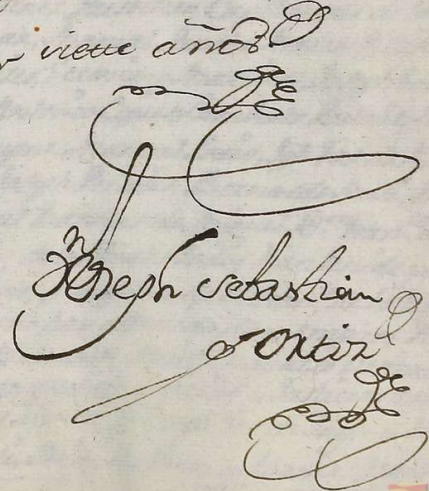 y siette años
Joseph Sebastian
Ortiz